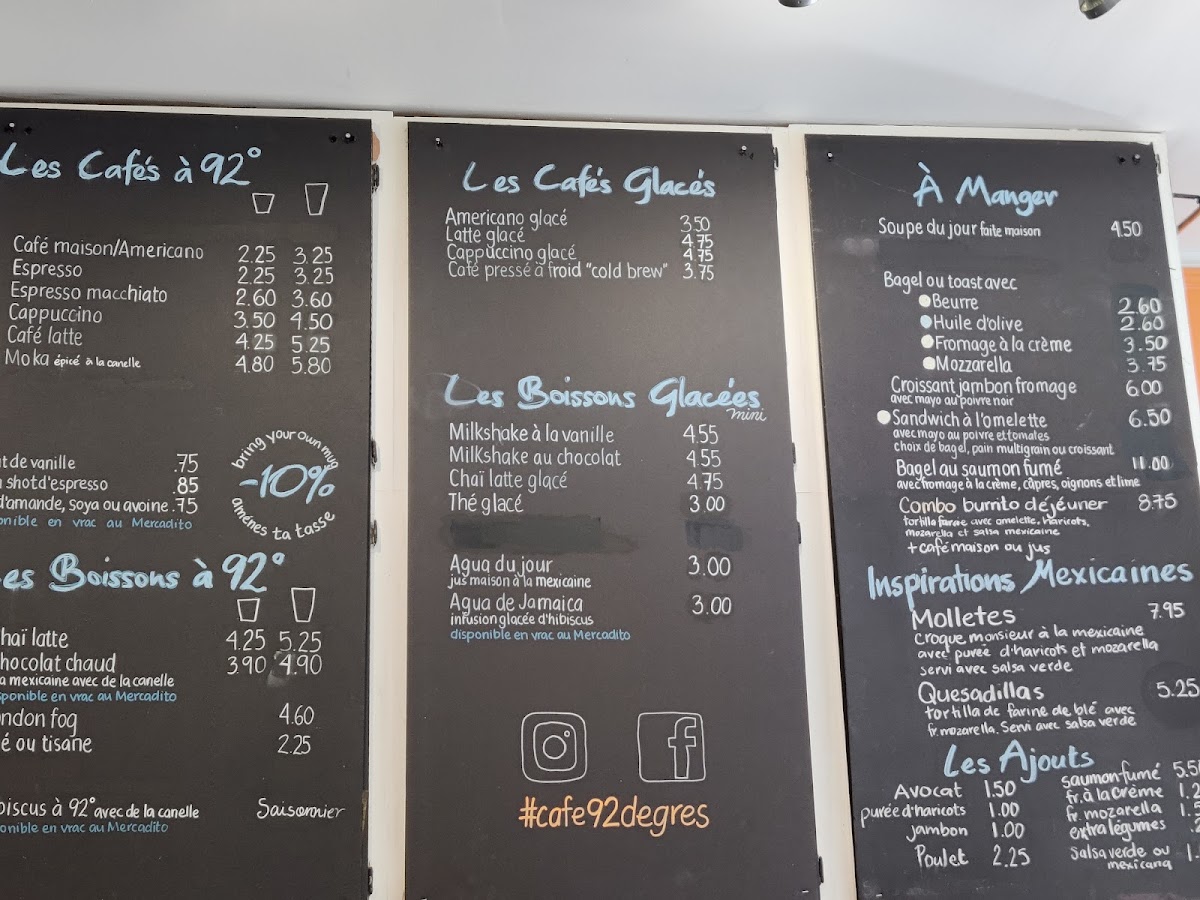 Les Cafés à 92°
Café maison/Americano 2.25 3.25
Espresso 2.25 3.25
Espresso macchiato 2.60 3.60
Cappuccino 3.50 4.50
Café latte 4.25 5.25
Moka épicé à la canelle 4.80 5.80
t de vanille .75
shot d'espresso .85
d'amande, soya ou avoine .75
ponible en vrac au Mercadito
bring your own mug
-10%
amènes ta tasse
es Boissons à 92°
haï latte 4.25 5.25
hocolat chaud 3.90 4.90
a mexicaine avec de la canelle
sponible en vrac au Mercadito
ondon fog 4.60
é ou tisane 2.25
biscus à 92° avec de la canelle Saisonnier
onible en vrac au Mercadito
Les Cafés Glacés
Americano glacé 3.50
Latte glacé 4.75
Cappuccino glacé 4.75
Café pressé à froid "cold brew" 3.75
Les Boissons Glacées
mini
Milkshake à la vanille 4.55
Milkshake au chocolat 4.55
Chaï latte glacé 4.75
Thé glacé 3.00
Agua du jour 3.00
jus maison à la mexicaine
Agua de Jamaica 3.00
infusion glacée d'hibiscus
disponible en vrac au Mercadito
#cafe92degres
À Manger
Soupe du jour faite maison 4.50
Bagel ou toast avec
Beurre 2.60
Huile d'olive 2.60
Fromage à la crème 3.50
Mozzarella 3.75
Croissant jambon fromage 6.00
avec mayo au poivre noir
Sandwich à l'omelette 6.50
avec mayo au poivre et tomates
choix de bagel, pain multigrain ou croissant
Bagel au saumon fumé 11.00
avec fromage à la crème, câpres, oignons et lime
Combo burrito déjéuner 8.75
tortilla farine avec omelette, haricots,
mozarella et salsa mexicaine
+ café maison ou jus
Inspirations Mexicaines
Molletes 7.95
croque monsieur à la mexicaine
avec purée d'haricots et mozarella
servi avec salsa verde
Quesadillas 5.25
tortilla de farine de blé avec
fr. mozarella. Servi avec salsa verde
Les Ajouts
Avocat 1.50
purée d'haricots 1.00
jambon 1.00
Poulet 2.25
saumon fumé 5.5
fr. à la crème 1.2
fr. mozarella 1.
extra légumes
salsa verde ou 1.
mexicana